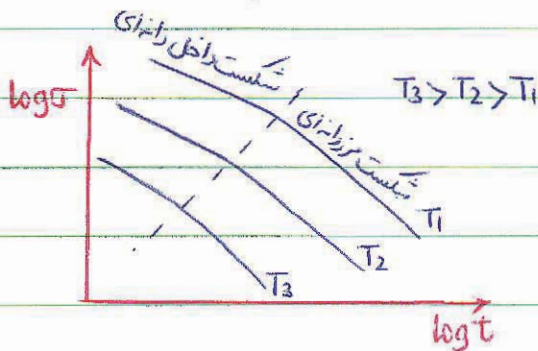 شکست داخل دانه‌ای
شکست مرزدانه‌ای
logσ
T₃ > T₂ > T₁
T₁
T₂
T₃
log t